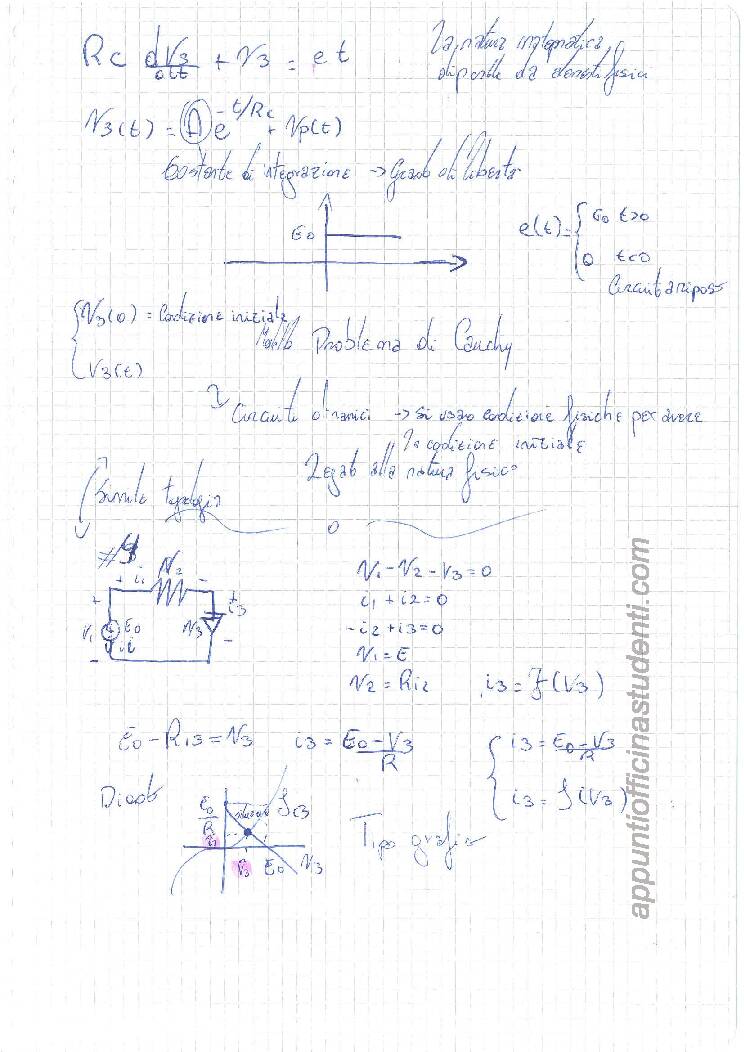 RC dV3/dt + V3 = et
La natura matematica
dipende da elementi fisici
V3(t) = A e^-t/RC + Vp(t)
Costante di integrazione → Grado di libertà
E0
e(t) = { E0 t>0
0 t<0
Circuito a riposo
V3(0) = Condizione iniziale
V3(t)
Problema di Cauchy
Circuiti dinamici → si usano condizioni fisiche per avere
la condizione iniziale
Legato alla natura fisica
Simile topologia
+ i1 V2 -
+ V1 E0 i -
V3 + i3 -
V1 - V2 - V3 = 0
i1 + i2 = 0
-i2 + i3 = 0
V1 = E
V2 = Ri2
i3 = f(V3)
E0 - Ri3 = V3
i3 = E0 - V3 / R
{ i3 = E0 - V3 / R
i3 = f(V3)
Diodo
E0/R
soluzione
i3
V3
E0
V3
Tipo grafico
appuntiofficinastudenti.com